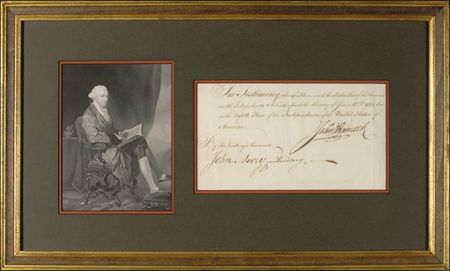 In Testimony whereof I have caused the Public Seal of the Common
wealth of Massachusetts to be hereunto affixed this
in the Eighth Year of the Independence of the United States of
America.
John Hancock
By His Excellency's Command
John Avery